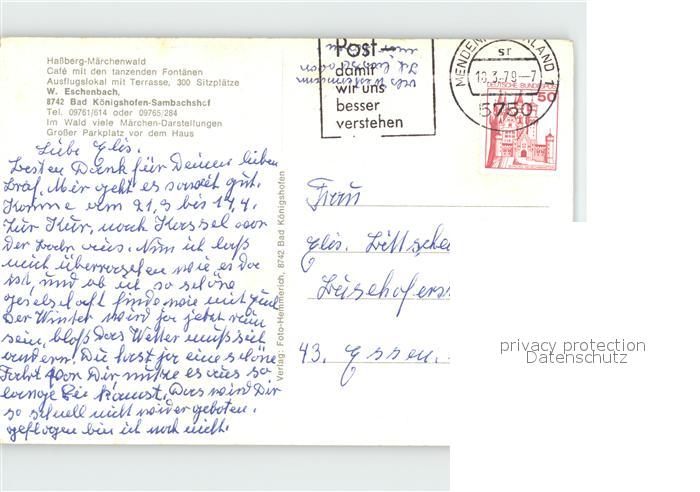 Haßberg-Märchenwald
Café mit den tanzenden Fontänen
Ausflugslokal mit Terrasse, 300 Sitzplätze
W. Eschenbach,
8742 Bad Königshofen-Sambachshof
Tel. 09761/614 oder 09765/284
Im Wald viele Märchen-Darstellungen
Großer Parkplatz vor dem Haus
Liebe Elis.
Besten Dank für Deinen lieben
Brief. Mir geht es soweit gut.
Komme vom 21.3 bis 17.4.
zur Kur, nach Kassel von
der Bahn aus. Nun ich laß
mich überraschen wie es da
ist, und ob ich so schöne
geselschaft finde wie mit Euch
Der Winter wird ja jetzt rum
sein, bloß das Wetter muß sich
ändern. Du hast ja eine schöne
Fahrt vor Dir nütze es aus so
lange Sie kannst. Das wird Dir
so schnell nicht wieder geboten.
geflogen bin ich noch nicht.
Verlag: Foto-Hemmerich, 8742 Bad Königshofen
Post
damit
wir uns
besser
verstehen
MENDEN SAUERLAND 1
sr
-7
5750
DEUTSCHE BUNDESPOST
50
Frau
Elis.
43. Essen.
privacy protection
Datenschutz